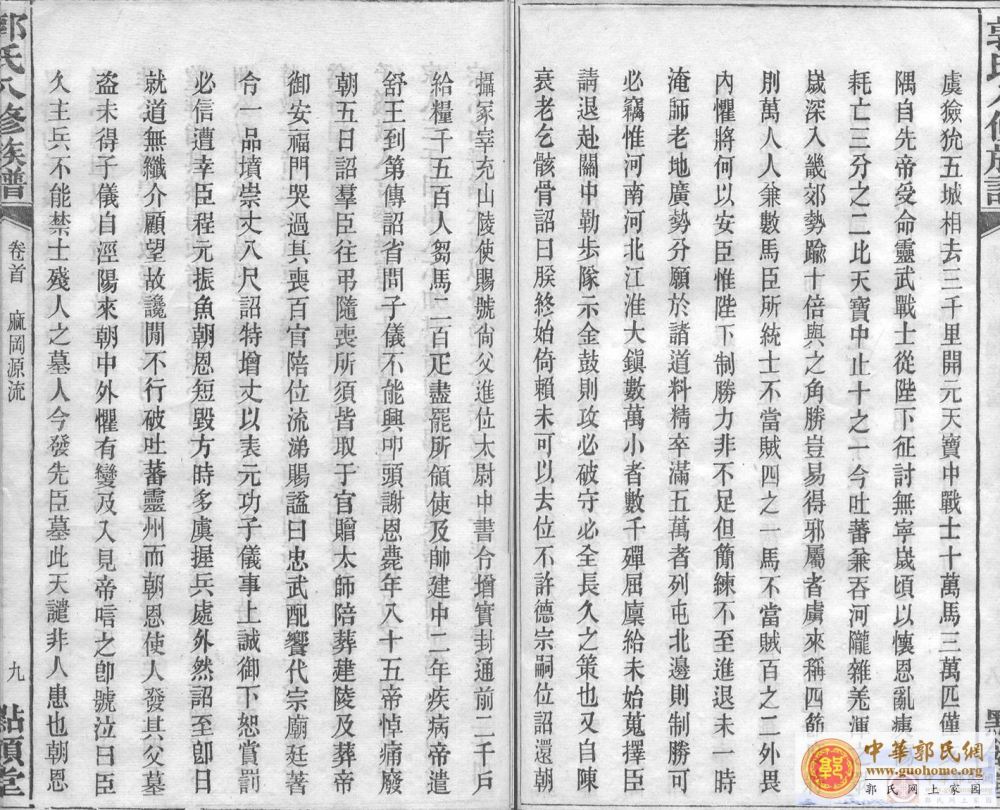 虞獫狁五城相去三千里開元天寶中戰士十萬馬三萬匹僅
隅自先帝受命靈武戰士從陛下征討無寧嵗頃以懷恩亂痍
耗亡三分之二比天寶中止十之一今吐蕃兼吞河隴雜羌渾
嵗深入畿郊勢踰十倍與之角勝豈易得邪屬者虜來稱四節
別萬人人兼數馬臣所統士不當賊四之一馬不當賊百之二外畏
內懼將何以安臣惟陛下制勝力非不足但簡練不至進退未一時
淹師老地廣勢分願於諸道料精卒滿五萬者列屯北邊則制勝可
必竊惟河南河北江淮大鎮數萬小者數千殫屈廩給未始蒐擇臣
請退赴關中勒步隊示金鼓則攻必破守必全長久之策也又自陳
衰老乞骸骨詔曰朕終始倚賴未可以去位不許德宗嗣位詔還朝
攝冢宰充山陵使賜號尙父進位太尉中書令增實封通前二千戶
給糧千五百人芻馬二百疋盡罷所領使及帥建中二年疾病帝遣
舒王到第傳詔省問子儀不能興叩頭謝恩薨年八十五帝悼痛廢
朝五日詔羣臣往弔隨喪所須皆取于官贈太師陪葬建陵及葬帝
御安福門哭過其喪百官陪位流涕賜謚曰忠武配饗代宗廟廷著
令一品墳崇丈八尺詔特增丈以表元功子儀事上誠御下恕賞罰
必信遭幸臣程元振魚朝恩短毀方時多虞握兵處外然詔至卽日
就道無纖介顧望故讒間不行破吐蕃靈州而朝恩使人發其父墓
盗未得子儀自涇陽來朝中外懼有變及入見帝唁之卽號泣曰臣
久主兵不能禁士殘人之墓人今發先臣墓此天譴非人患也朝恩
郭氏八修族譜
卷首
麻岡源流
九
點頭堂
中華郭氏網
www.guohome.org
郭氏网上家园